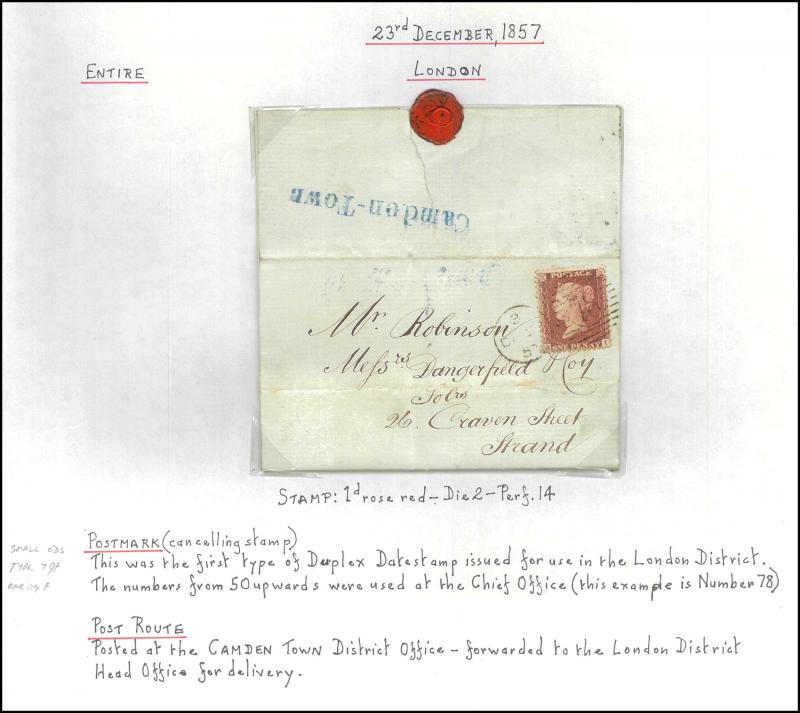 23rd DECEMBER, 1857
ENTIRE
LONDON
Camden-Town
POSTAGE
ONE PENNY
Mr. Robinson
Messrs Dangerfield & Coy
Solrs
26. Craven Street
Strand
STAMP: 1d rose red – Die 2 – Perf. 14
SMALL CDS
TYPE
RARITY F
POSTMARK (cancelling stamp)
This was the first type of Duplex Datestamp issued for use in the London District.
The numbers from 50 upwards were used at the Chief Office (this example is Number 78)
POST ROUTE
Posted at the CAMDEN TOWN District Office – forwarded to the London District
Head Office for delivery.